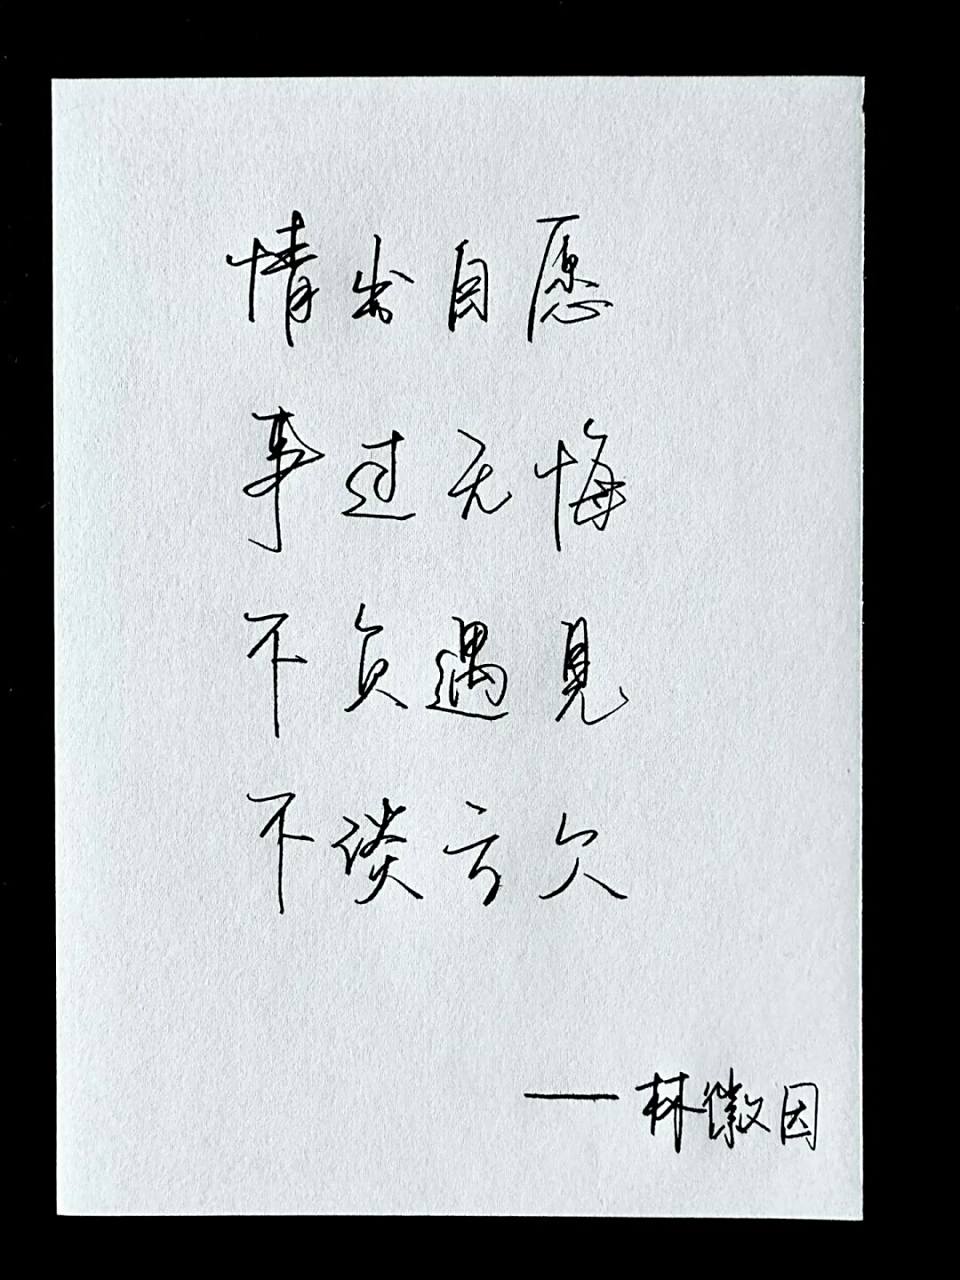 情出自愿
事过无悔
不负遇見
不谈亏欠
——林徽因